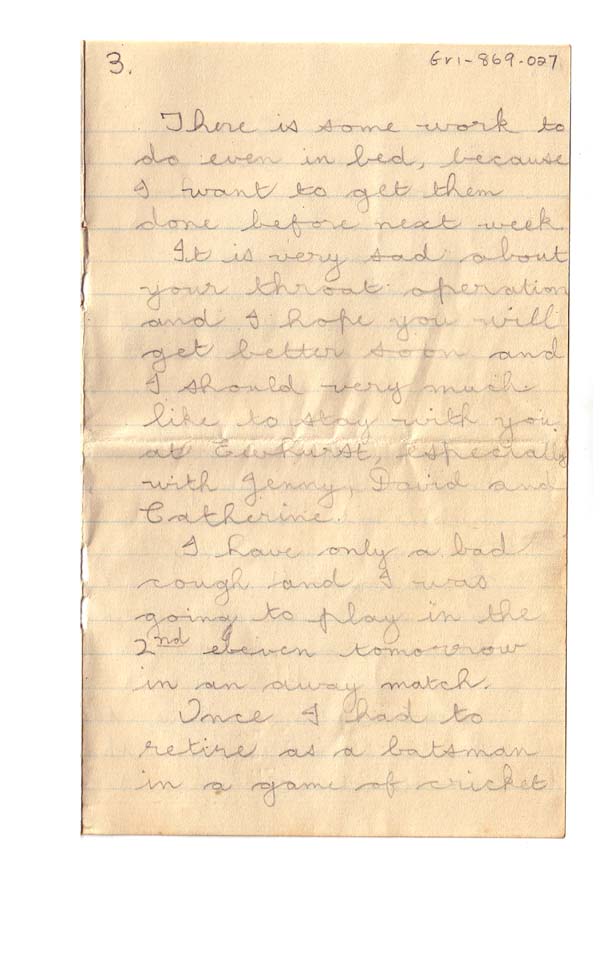 3.
Gri-869-027
There is some work to
do even in bed, because
I want to get them
done before next week.
It is very sad about
your throat operation
and I hope you will
get better soon and
I should very much
like to stay with you
at Ewhurst, especially
with Jenny, David and
Catherine.
I have only a bad
cough and I was
going to play in the
2nd eleven tomorrow
in an away match.
Once I had to
retire as a batsman
in a game of cricket